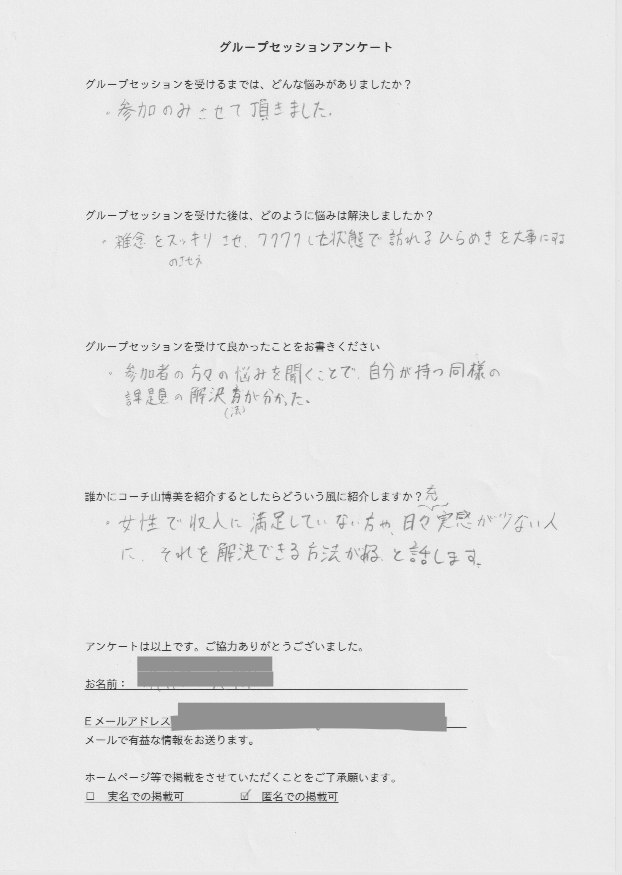 グループセッションアンケート
グループセッションを受けるまでは、どんな悩みがありましたか？
・参加のみさせて頂きました。
グループセッションを受けた後は、どのように悩みは解決しましたか？
・雑念をスッキリさせ、ワクワクした状態で訪れるひらめきを大事にする
グループセッションを受けて良かったことをお書きください
・参加者の方々の悩みを聞くことで、自分が持つ同様の
課題の解決 が分かった。
(法)
誰かにコーチ山博美を紹介するとしたらどういう風に紹介しますか？
充
・女性で収入に満足していない方や、日々実感が少ない人
に、それを解決できる方法がある、と話します。
アンケートは以上です。ご協力ありがとうございました。
お名前：
Eメールアドレス
メールで有益な情報をお送ります。
ホームページ等で掲載をさせていただくことをご了承願います。
☐ 実名での掲載可 ☑ 匿名での掲載可